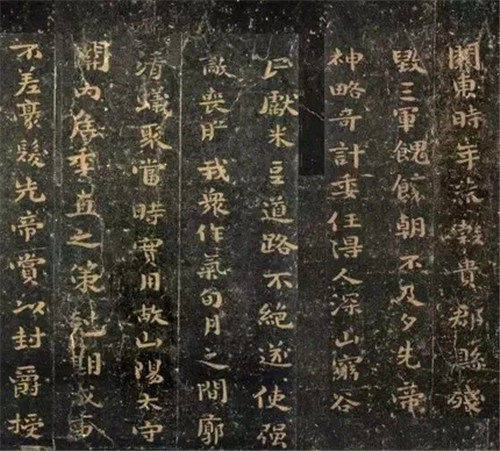 關東時年荒穀貴郡縣殘
毀三軍餽饟朝不及夕先帝
神略奇計委任得人深山窮谷
民獻米豆道路不絶遂使强
敵喪胆我衆作氣旬月之間廓
清蟻聚當時實用故山陽太守
關內侯季直之策尅期成事
不差豪髮先帝賞以封爵授